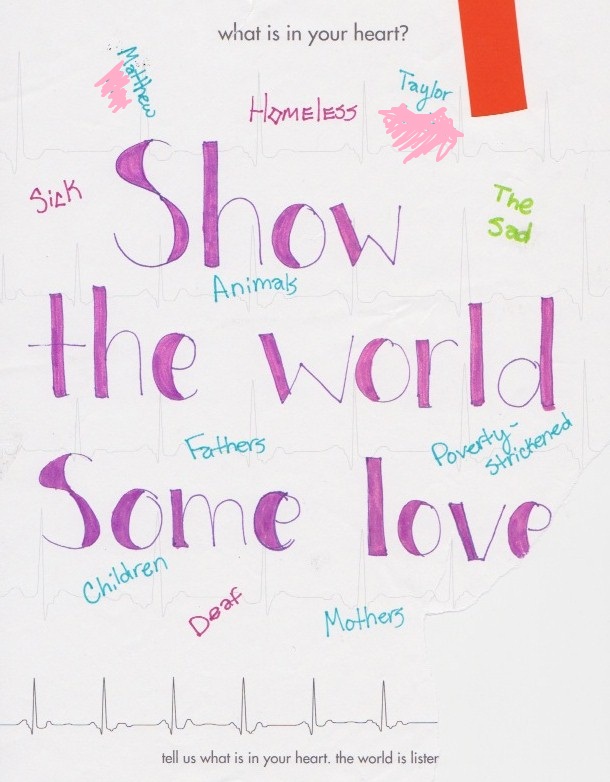 what is in your heart?
Matthew
Taylor
Homeless
Sick
The
Sad
Show
Animals
the world
Fathers
Poverty-
strickened
Some love
Children
Deaf
Mothers
tell us what is in your heart. the world is lister